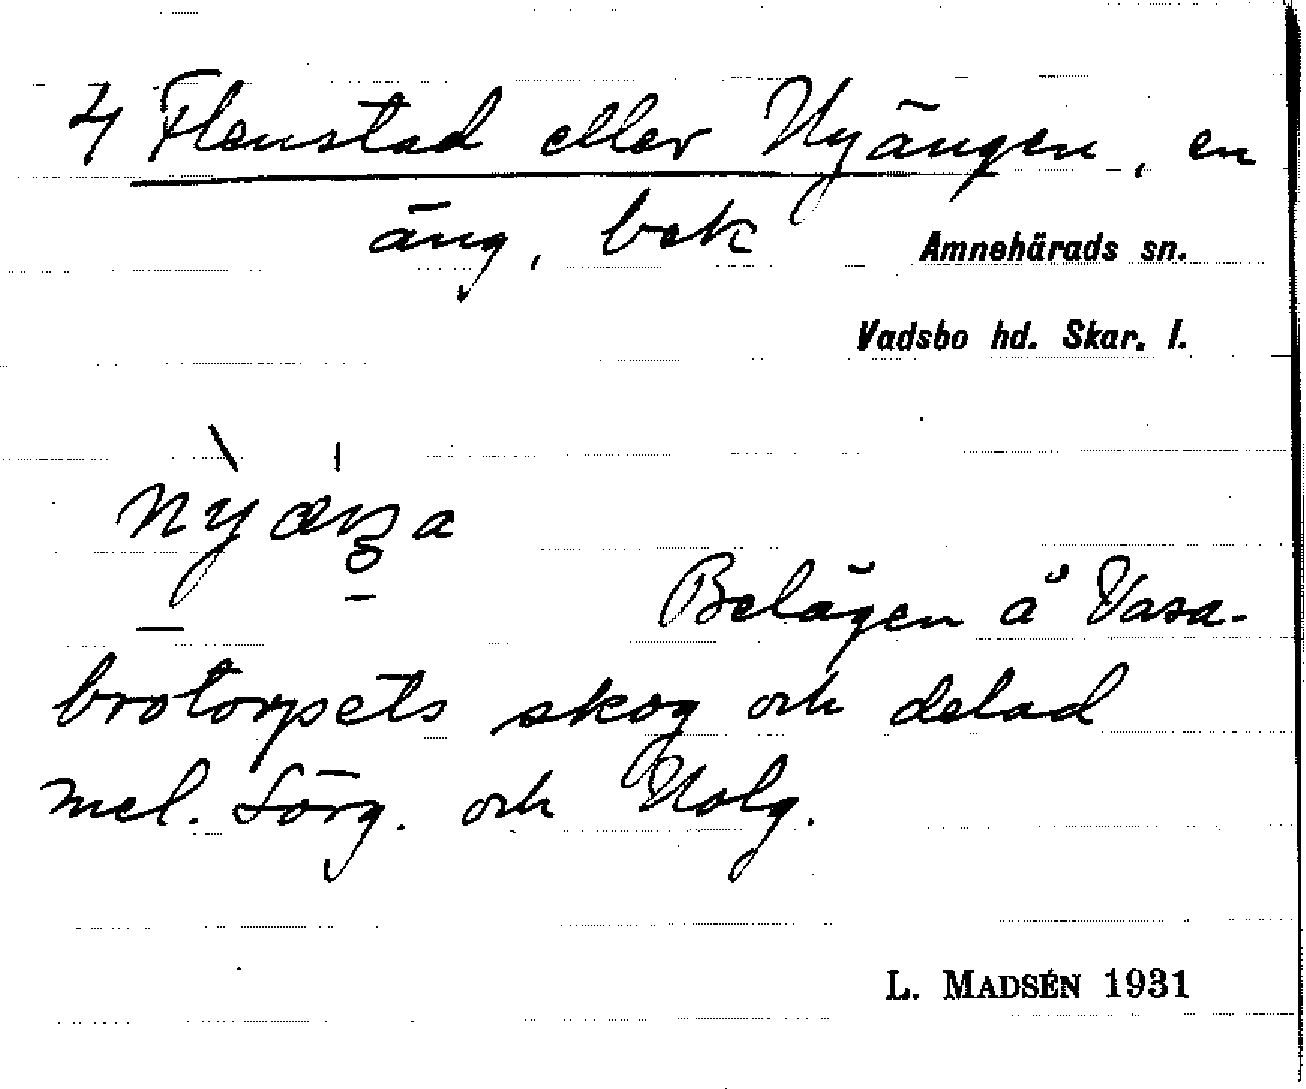 4 Flenstad eller Nyängen, en
äng, bek
Amnehärads sn.
Vadsbo hd. Skar. l.
Belägen å Vasa-
brotorpets skog och delad
mel. Sörg. och Nolg.
L. MADSÉN 1931